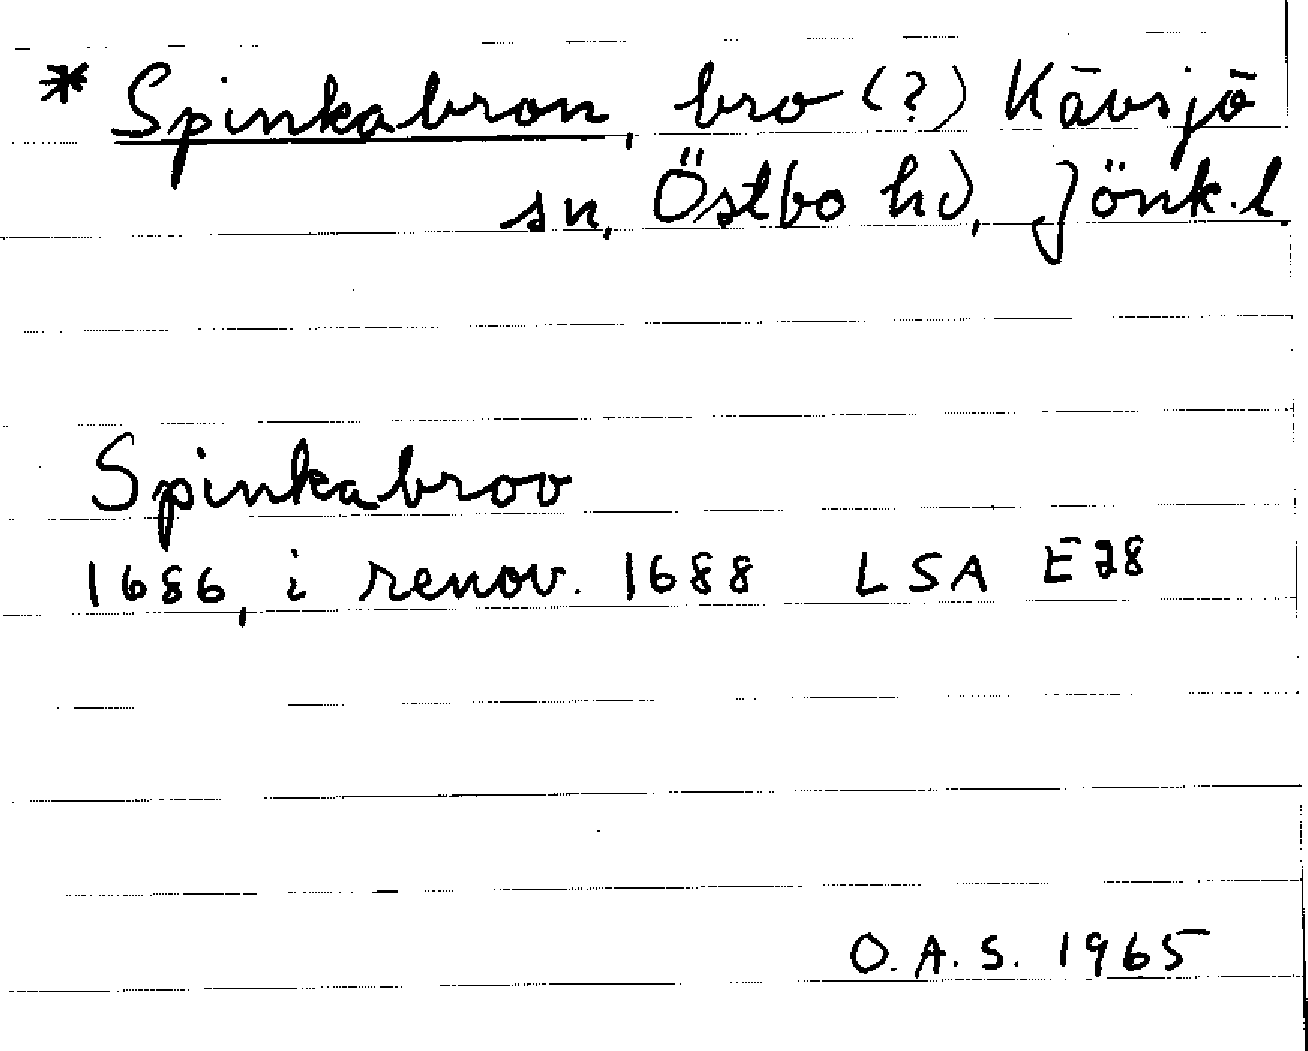 * Spinkabron, bro (?) Kävsjö
sn, Östbo hd, Jönk.l.
Spinkabroo
1686, i renov. 1688 LSA E28
O.A.S. 1965